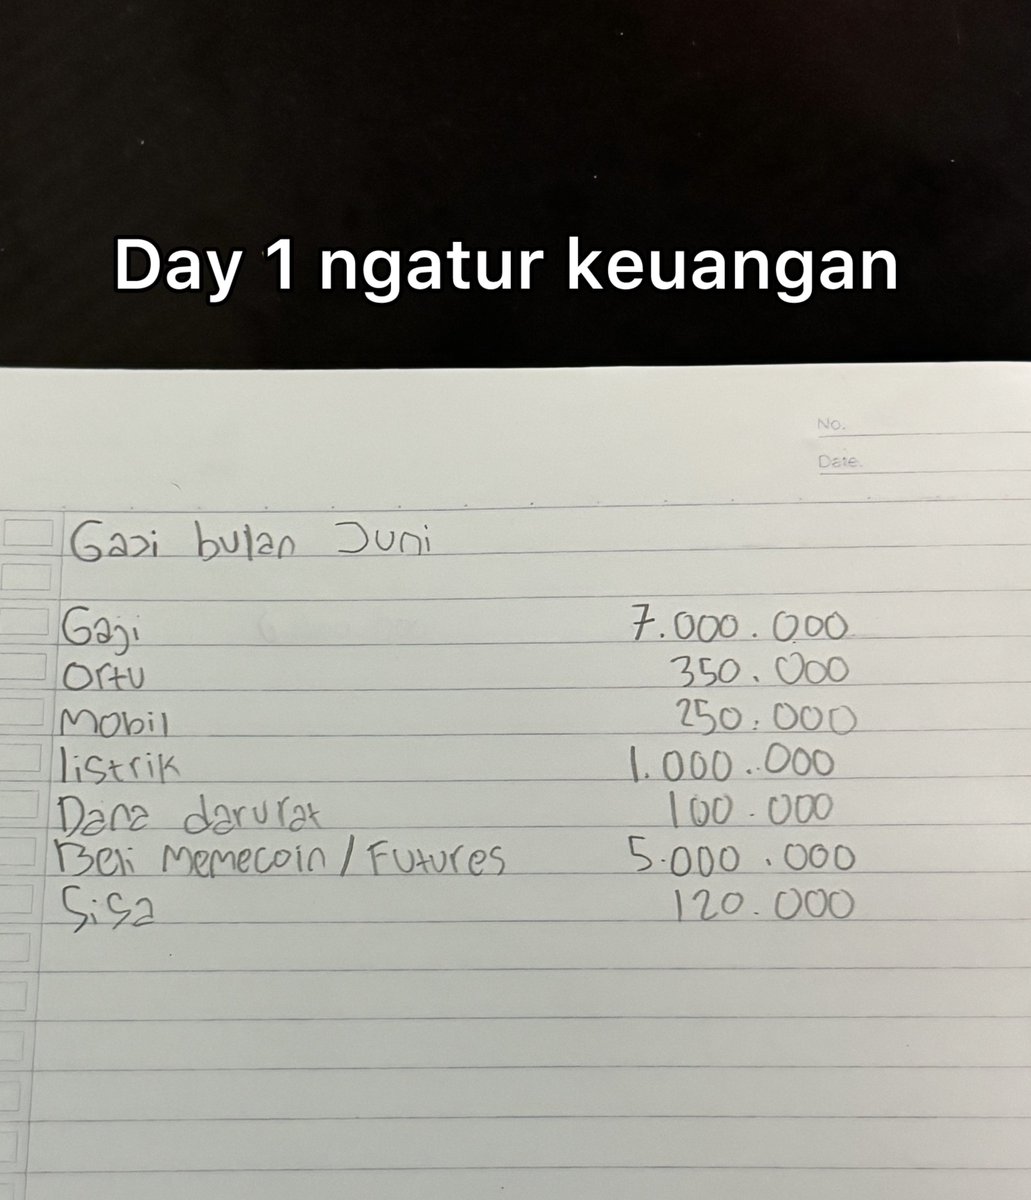 Day 1 ngatur keuangan
No.
Date.
Gaji bulan Juni
Gaji 7.000.000
Ortu 350.000
Mobil 250.000
listrik 1.000.000
Dana darurat 100.000
Beli Memecoin / Futures 5.000.000
Sisa 120.000